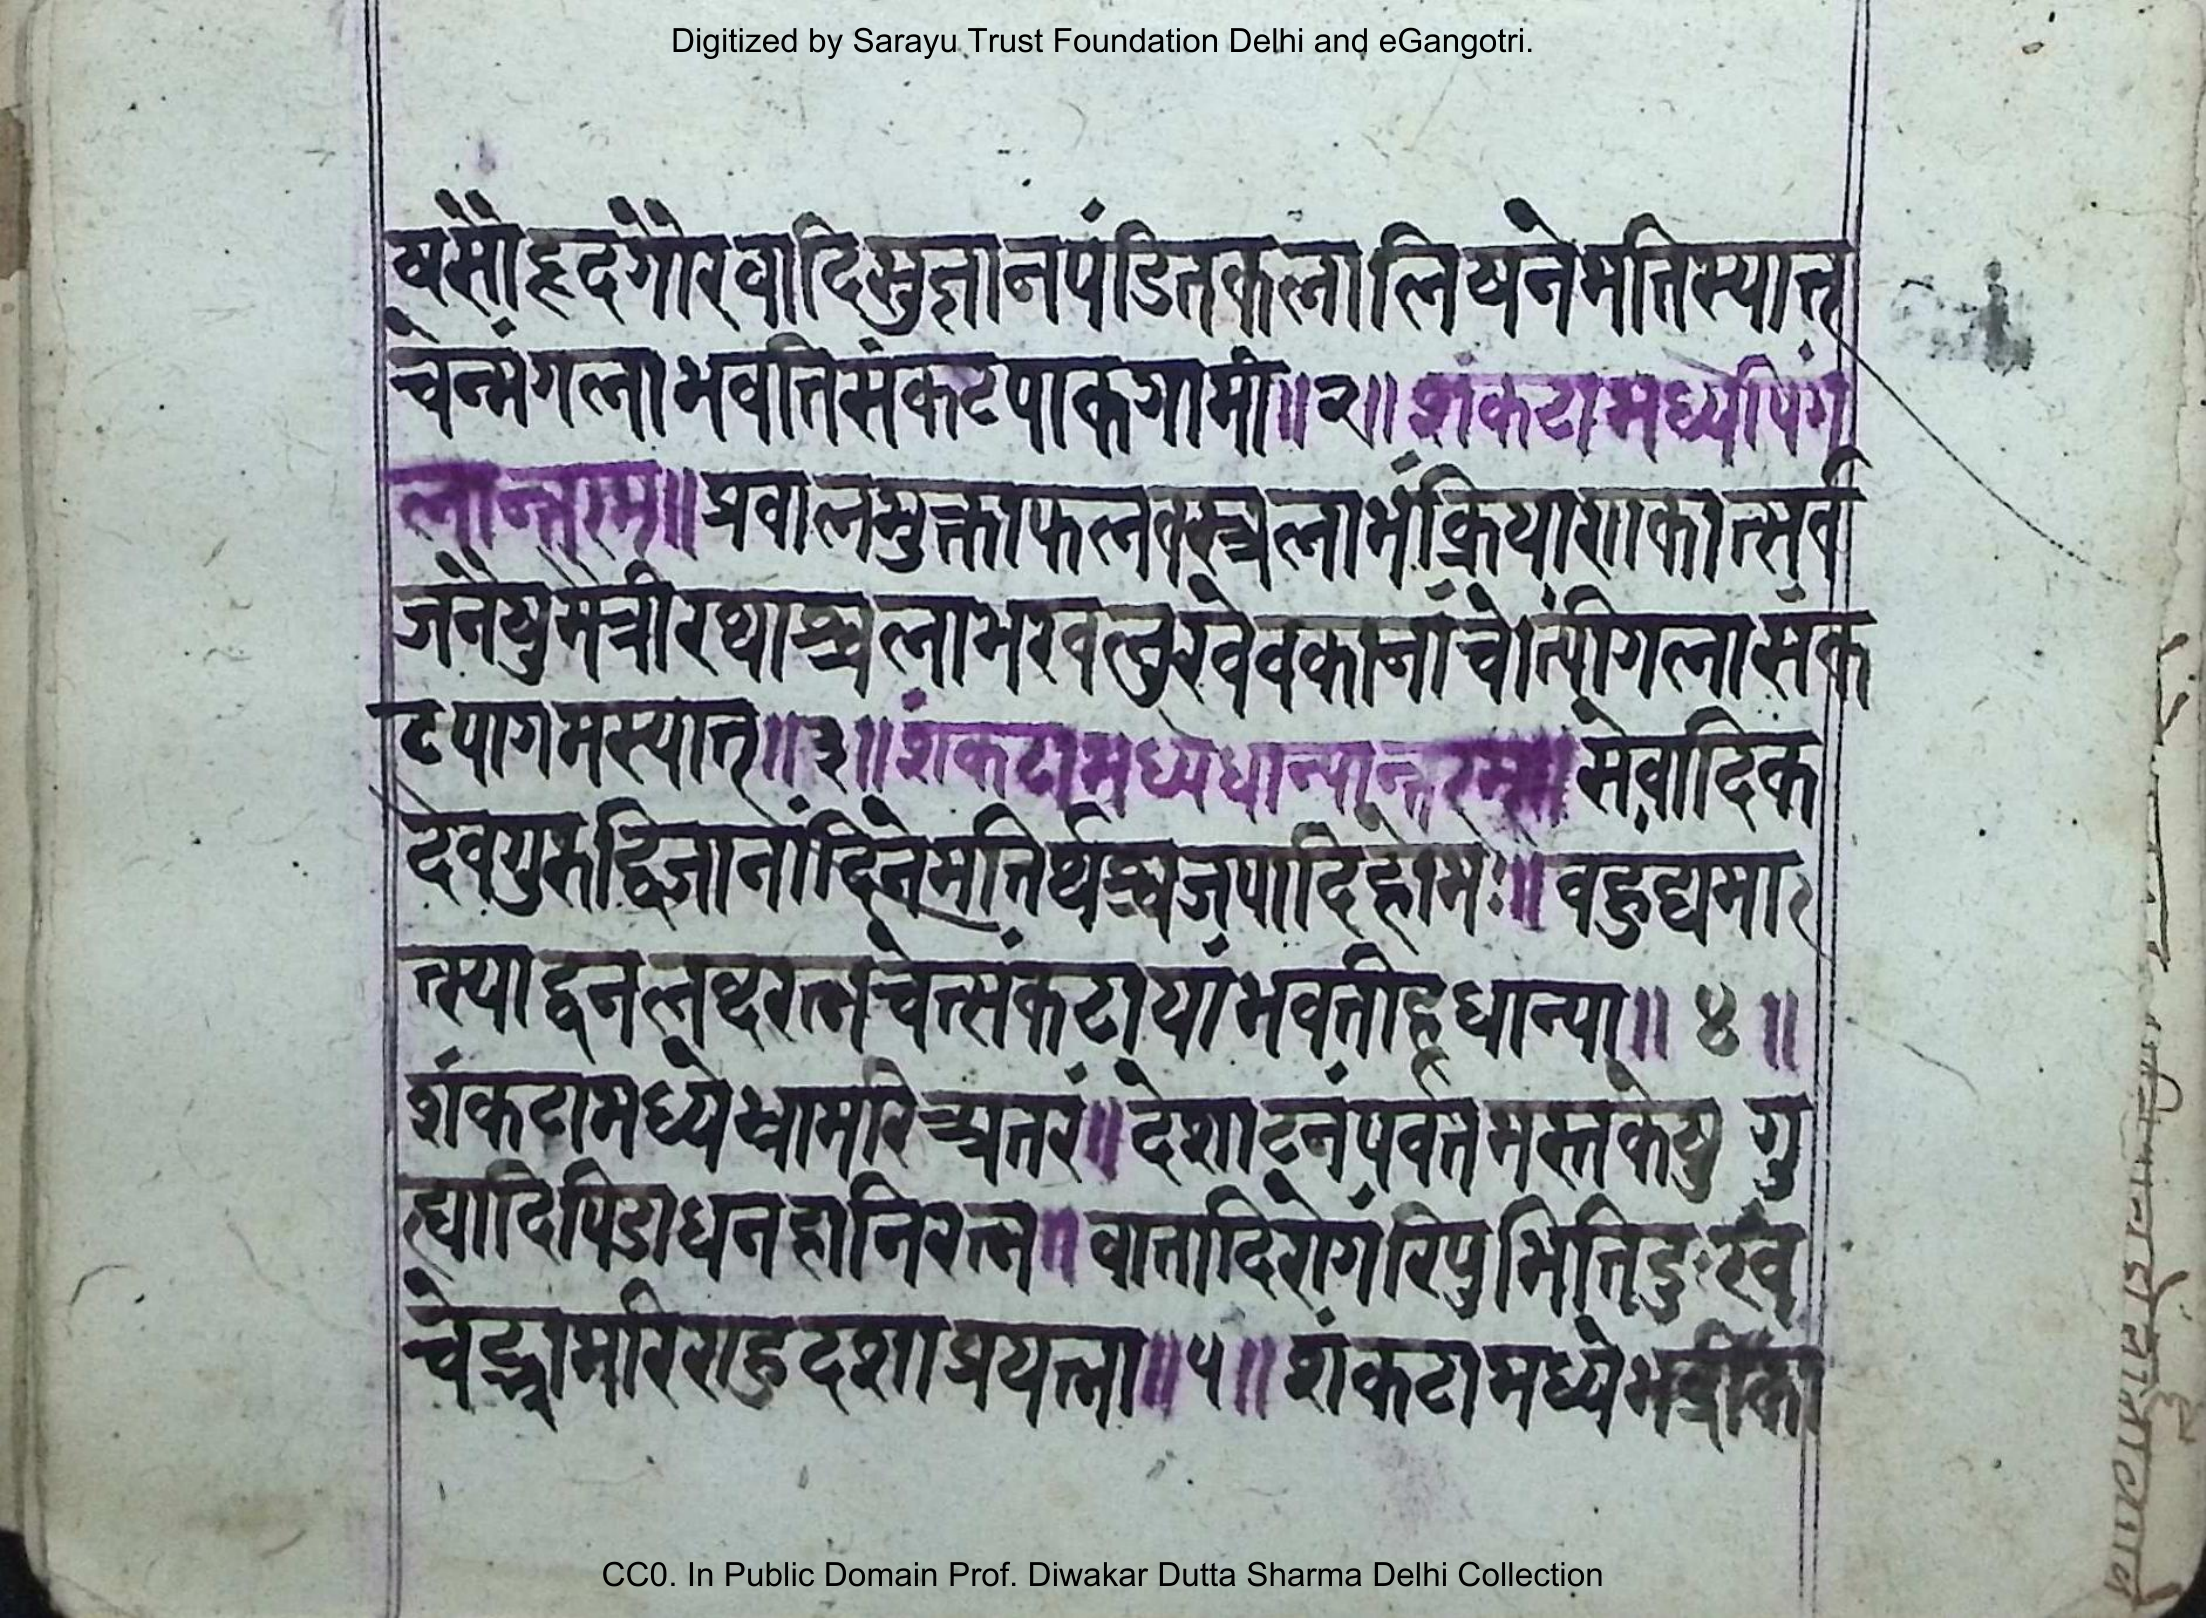 Digitized by Sarayu Trust Foundation Delhi and eGangotri.
षसौहृदगौरवादिसुज्ञानपंडितकलालिषनेमतिस्यात्त
चेन्मंगलाभवतिसंकटपाकगामी॥२॥शंकटामध्येपिंग
लान्तरम॥प्रवालमुक्ताफलवस्त्रलाभंक्रियाशाकात्सर्व
जनैषुमैत्रीरथाश्वलाभरवलुरवेवकानांचेत्पींगलासंक
टपागमस्यात्त॥३॥शंकटामध्येधान्यान्तरम्॥सेवादिक
देवगुरुद्विजानांदिनेमतिर्थश्वजपादिहोमः॥वहुद्यमा
त्स्याद्धनलब्धरत्नचेत्संकटायांभवतीहधान्या॥४॥
शंकटामध्येभ्रामरिच्यतरं॥देशाटनंपर्वतमस्तकेषु गु
ह्यादिपिडाधनहानिरत्न॥वातादिरोगंरिपुभितिदुःखं
चेद्भ्रामरिराहुदशाप्रयत्ना॥५॥शंकटामध्येभद्रीका
CC0. In Public Domain Prof. Diwakar Dutta Sharma Delhi Collection